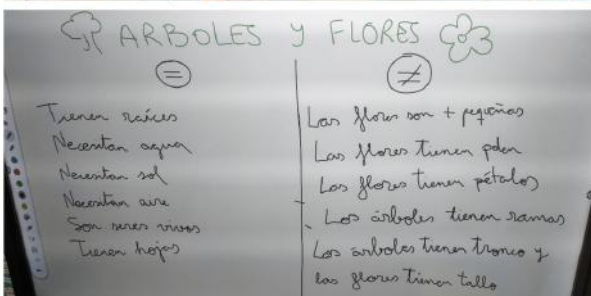 ARBOLES y FLORES
=
≠
Tienen raíces
Necesitan agua
Necesitan sol
Necesitan aire
Son seres vivos
Tienen hojas
Las flores son + pequeñas
Las flores tienen polen
Las flores tienen pétalos
Los árboles tienen ramas
Los arboles tienen tronco y
las flores tienen tallo